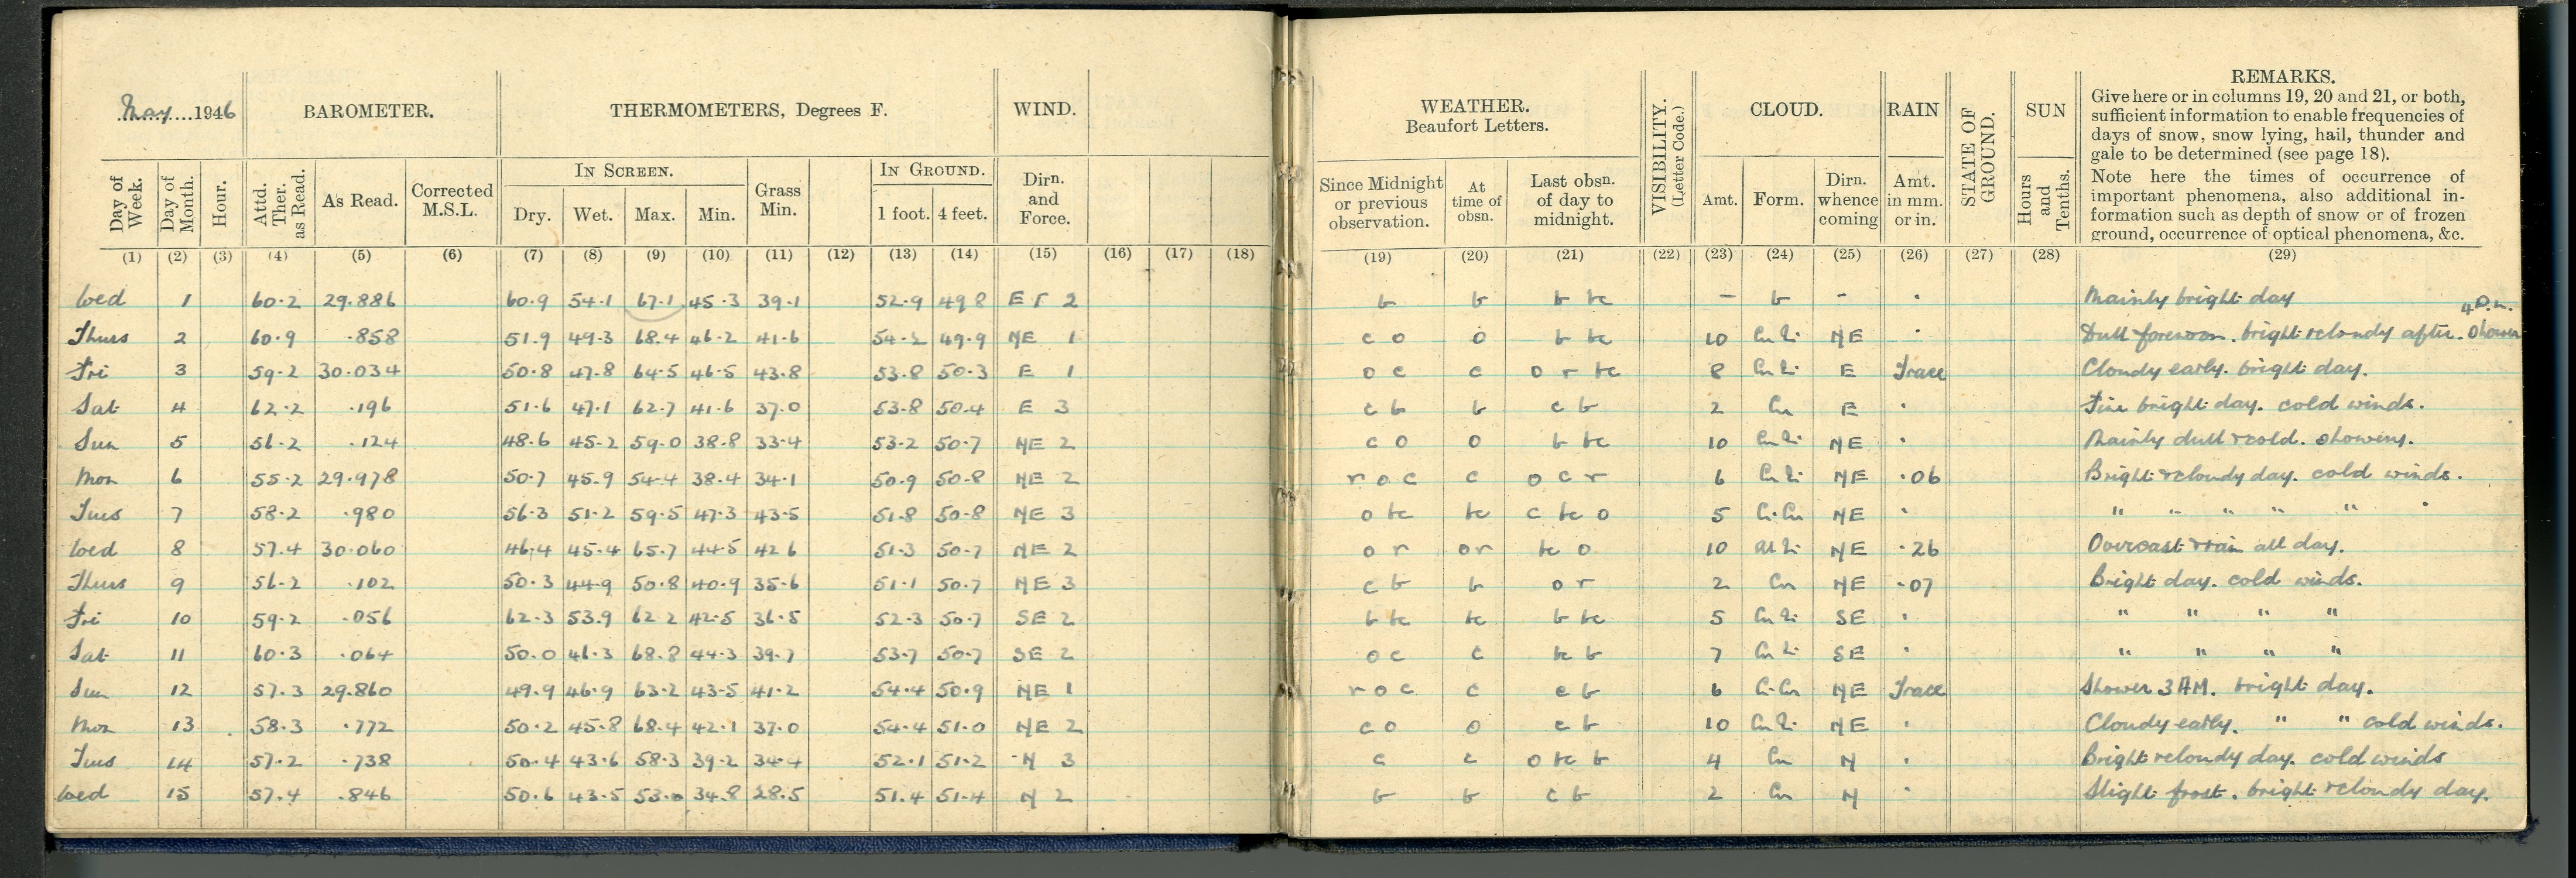 May 1946 BAROMETER. THERMOMETERS, Degrees F. WIND. WEATHER. Beaufort Letters. VISIBILITY. (Letter Code.) CLOUD. RAIN STATE OF GROUND. SUN REMARKS.
Give here or in columns 19, 20 and 21, or both,
sufficient information to enable frequencies of
days of snow, snow lying, hail, thunder and
gale to be determined (see page 18).
Note here the times of occurrence of
important phenomena, also additional in-
formation such as depth of snow or of frozen
ground, occurrence of optical phenomena, &c.
IN SCREEN. IN GROUND.
Day of Week. Day of Month. Hour. Attd. Ther. as Read. As Read. Corrected M.S.L. Dry. Wet. Max. Min. Grass Min. 1 foot. 4 feet. Dirn. and Force. Since Midnight or previous observation. At time of obsn. Last obsn. of day to midnight. Amt. Form. Dirn. whence coming Amt. in mm. or in. Hours and Tenths.
(1) (2) (3) (4) (5) (6) (7) (8) (9) (10) (11) (12) (13) (14) (15) (16) (17) (18) (19) (20) (21) (22) (23) (24) (25) (26) (27) (28) (29)
Wed 1 60.2 29.886 60.9 54.1 67.1 45.3 39.1 52.9 49 8 E 2 b b b bc – b - . Mainly bright day
4 P.m.
Thurs 2 60.9 .858 51.9 49.3 68.4 46.2 41.6 54.2 49.9 NE 1 c o o b bc 10 NE . Dull forenoon. bright & cloudy after. Shower
Fri 3 59.2 30.034 50.8 47.8 64.5 46.5 43.8 53.8 50.3 E 1 o c c o r bc 8 E Trace Cloudy early. bright day.
Sat 4 62.2 .196 51.6 47.1 62.7 41.6 37.0 53.8 50.4 E 3 c b b c b 2 Cu E . Fine bright day. cold winds.
Sun 5 56.2 .124 48.6 45.2 59.0 38.8 33.4 53.2 50.7 NE 2 c o o b bc 10 NE . Mainly dull & cold. showery.
Mon 6 55.2 29.978 50.7 45.9 54.4 38.4 34.1 50.9 50.8 NE 2 r o c c o c r 6 NE .06 Bright & cloudy day. cold winds.
Tues 7 58.2 .980 56.3 51.2 59.5 47.3 43.5 51.8 50.8 NE 3 o bc bc c bc o 5 NE . " " " " " "
Wed 8 57.4 30.060 46.4 45.4 65.7 44.5 42 6 51.3 50.7 NE 2 o r o r bc o 10 NE .26 Overcast & rain all day.
Thurs 9 56.2 .102 50.3 44.9 50.8 40.9 35.6 51.1 50.7 NE 3 c b b o r 2 Cu NE .07 Bright day. cold winds.
Fri 10 59.2 .056 62.3 53.9 62 2 42.5 36.5 52.3 50.7 SE 2 b bc bc b bc 5 SE . " " " "
Sat 11 60.3 .064 50.0 46.3 68.8 44.3 39.7 53.7 50.7 SE 2 o c c bc b 7 SE . " " " "
Sun 12 57.3 29.860 49.9 46.9 63.2 43.5 41.2 54.4 50.9 NE 1 r o c c c b 6 NE Trace Shower 3 AM. bright day.
Mon 13 58.3 .772 50.2 45.8 68.4 42.1 37.0 54.4 51.0 NE 2 c o o c b 10 NE . Cloudy early. " " cold winds.
Tues 14 57.2 .738 50.4 43.6 58.3 39.2 34.4 52.1 51.2 N 3 c c o bc b 4 Cu N . Bright & cloudy day. cold winds
Wed 15 57.4 .846 50.6 43.5 53.0 34.8 28.5 51.4 51.4 N 2 b b c b 2 Cu N . Slight frost. bright & cloudy day.